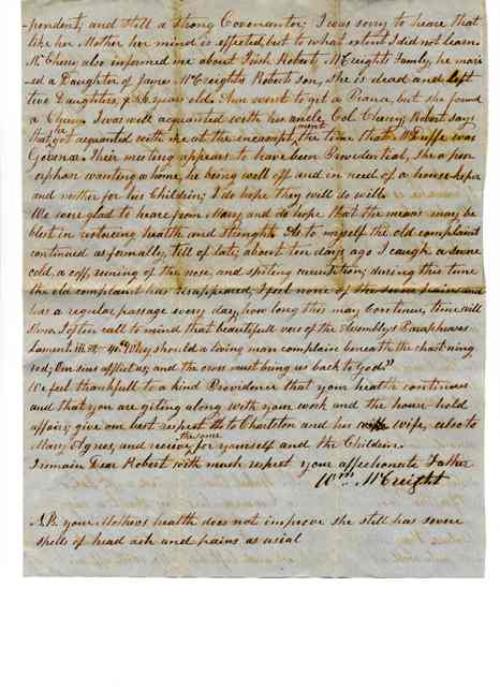 -pendent, and still a strong Covenantor; I was sorry to heare that
like her Mother her mind is effected, but to what extent I did not learn
Mr Cherry also informed me about Irish Robert McCreights family, he mari-
ed a Daughter of James McCreights Roberts son, she is dead and left
two Daughters, 4 & 6 years old. Ann went to git a Piana, but she found
a Chum. I was well acquanted with his uncle, Col Cherry, Robert says
that he got acquanted with me at the incampt ment, the time that McDuffe was
Govenor. Their meeting appears to have been Providential, she a poor
orphan wanting a home, he being well off and in need of a house keeper
and mother for his Children; I do hope they will do well.
We were glad to heare from Mary, and do hope that the means may be
blest in restoreing health and strenght. As to myself the old complaint
continued as formally, till of late, about ten days ago I caugh a severe
cold, a coff, runing of the nose, and spiting, during this time
the old complaint has disappeared, I feel none of the severe pains and
has a regular passage every day, how long this may continue, time will
show. I often call to mind that beautifull vers of the Assemblys Paraphrases
Lament. 3d Why should a living man complain beneath the chastning
rod; Our sins afflict us; and the cross must bring us back to God."
We feel thankfull to a kind Providence that your health continues
and that you are giting along with your work and the house hold
affairs; give our best respect to Charleton and his wife, also to
Mary Agnes, and recieve the same for yourself and the Children.
I remain Dear Robert with much respect your affectionate Father
Wm McCreight
N.B. your Mothers health does not improve she still has severe
spells of head ach and pains as usial